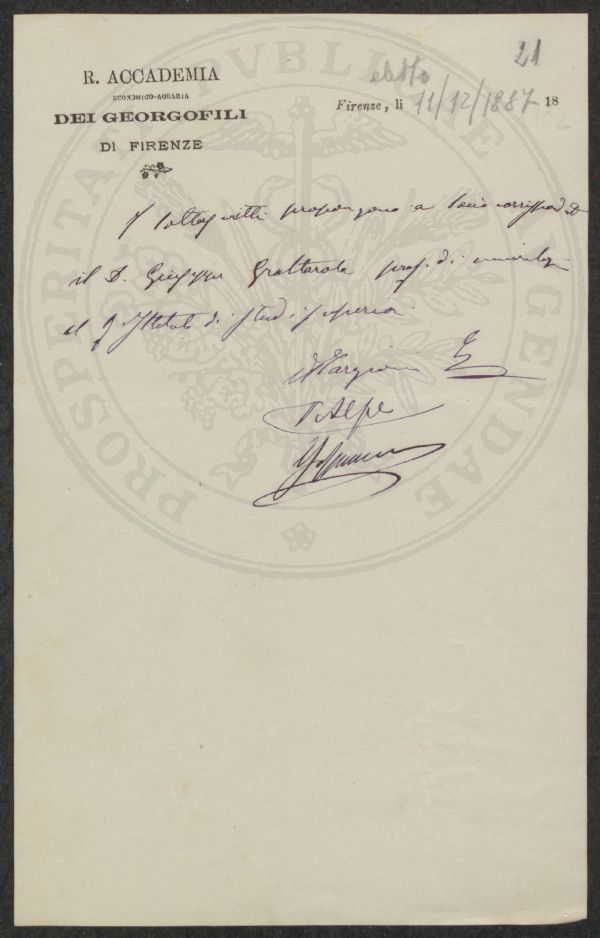 21
R. ACCADEMIA
ECONOMICO-AGRARIA
DEI GEORGOFILI
DI FIRENZE
eletto
Firenze, li 11/12/1887 18
I sottoscritti propongono a Socio corrispond
il D. Giuseppe Grattarola prof. di mineralog
al R Istituto di Studi superiori.
Targioni
V. Alpe
PROSPERITATI PVBLICAE AVGENDAE